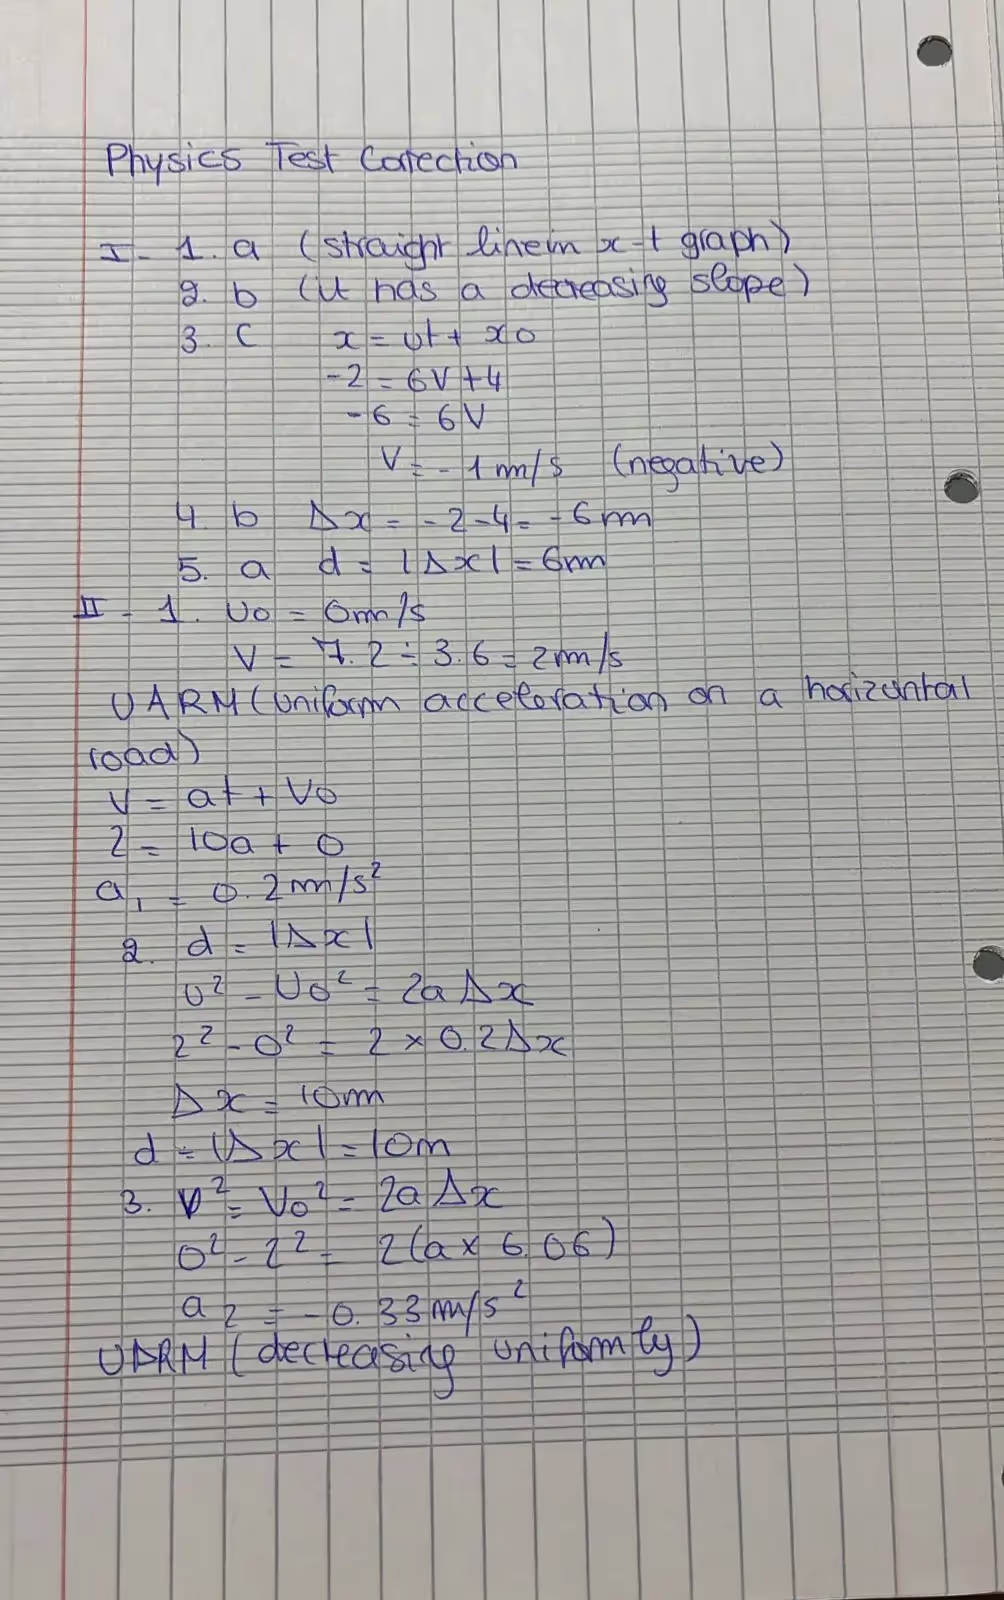 Physics Test Correction
I - 1. a (straight line in x-t graph)
2. b (it has a decreasing slope)
3. C x = vt + x0
-2 = 6V + 4
-6 = 6V
V = -1m/s (negative)
4. b Δx = -2-4 = -6m
5. a d = |Δx| = 6m
II - 1. v0 = 0m/s
V = 7.2 ÷ 3.6 = 2m/s
UARM (uniform acceleration on a horizontal
road)
V = at + V0
2 = 10a + 0
a₁ = 0.2m/s²
2. d = |Δx|
v² - v0² = 2aΔx
2² - 0² = 2 × 0.2Δx
Δx = 10m
d = |Δx| = 10m
3. V² = V0² = 2aΔx
0² - 2² = 2(a × 6.06)
a₂ = -0.33m/s²
UDRM (decreasing uniformly)